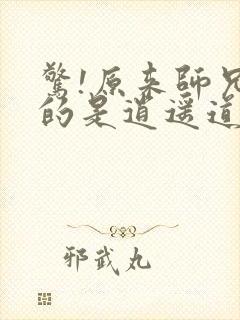 驚!原来師兄
的是道遥道
邪武丸